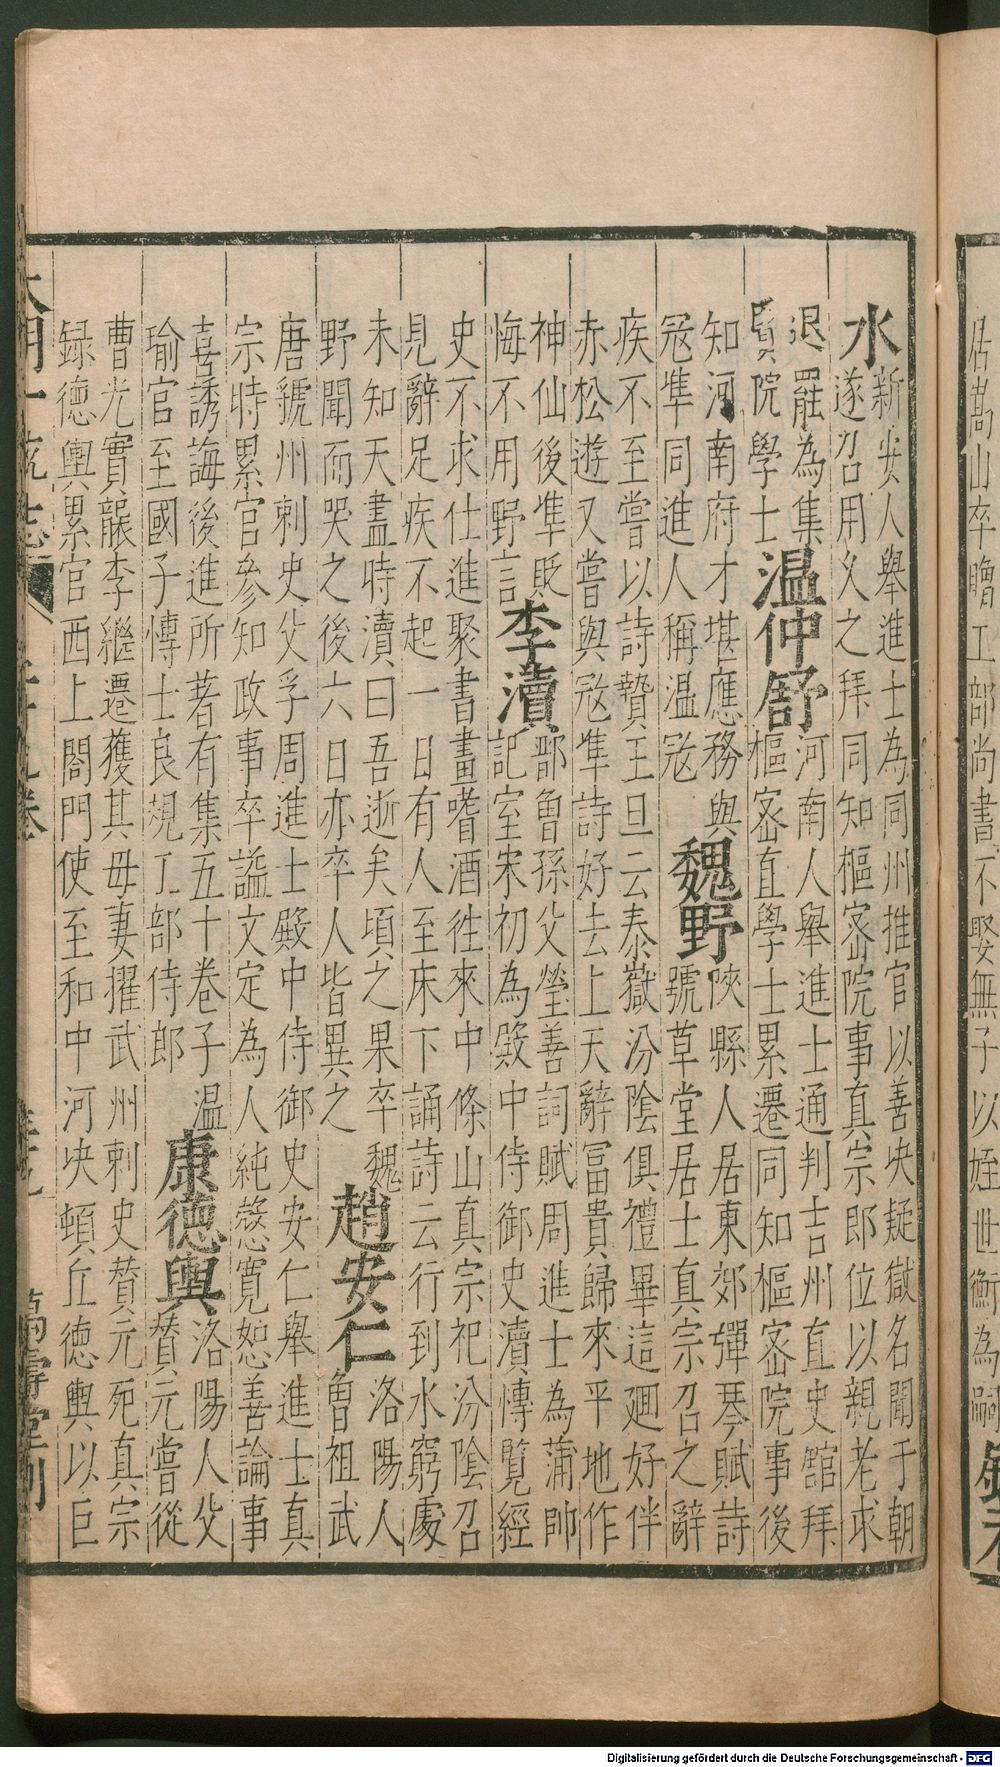 居嵩山卒贍工部尚書不娶無子以姪世衡為嗣錢若
水新安人舉進士為同州推官以善决疑獄名聞于朝
遂召用乂之拜同知樞密院事真宗即位以親老求
退罷為集
賢院學士
温仲舒
河南人舉進士通判吉州直史館拜
樞密直學士累遷同知樞密院事後
知河南府才堪應務與
寇準同進人稱温寇
魏野
陜縣人居東郊彈琴賦詩
號草堂居士真宗召之辭
疾不至嘗以詩贄王旦云泰嶽汾陰俱禮畢這廻好伴
赤松遊又嘗與寇準詩好去上天辭富貴歸來平地作
神仙後準貶
悔不用野言
李瀆
鄑魯孫父瑩善詞賦周進士為蒲帥
記室宋初為殿中侍御史瀆愽覽經
史不求仕進聚書畫嗜酒徃來中條山真宗祀汾陰召
見辭足疾不起一日有人至床下誦詩云行到水窮處
未知天盡時瀆曰吾逝矣頃之果卒魏
野聞而哭之後六日亦卒人皆異之
趙安仁
洛陽人
曾祖武
唐虢州刺史父孚周進士殿中侍御史安仁舉進士真
宗時累官參知政事卒謚文定為人純愨寬恕善論事
喜誘誨後進所著有集五十卷子温
瑜官至國子愽士良規工部侍郎
康德輿
洛陽人父
贊元嘗從
曹光實襲李繼遷獲其母妻擢武州刺史贊元死真宗
録德輿累官西上閤門使至和中河决頓丘德輿以巨
大明一統志
萬壽堂刊
Digitalisierung gefördert durch die Deutsche Forschungsgemeinschaft - DFG